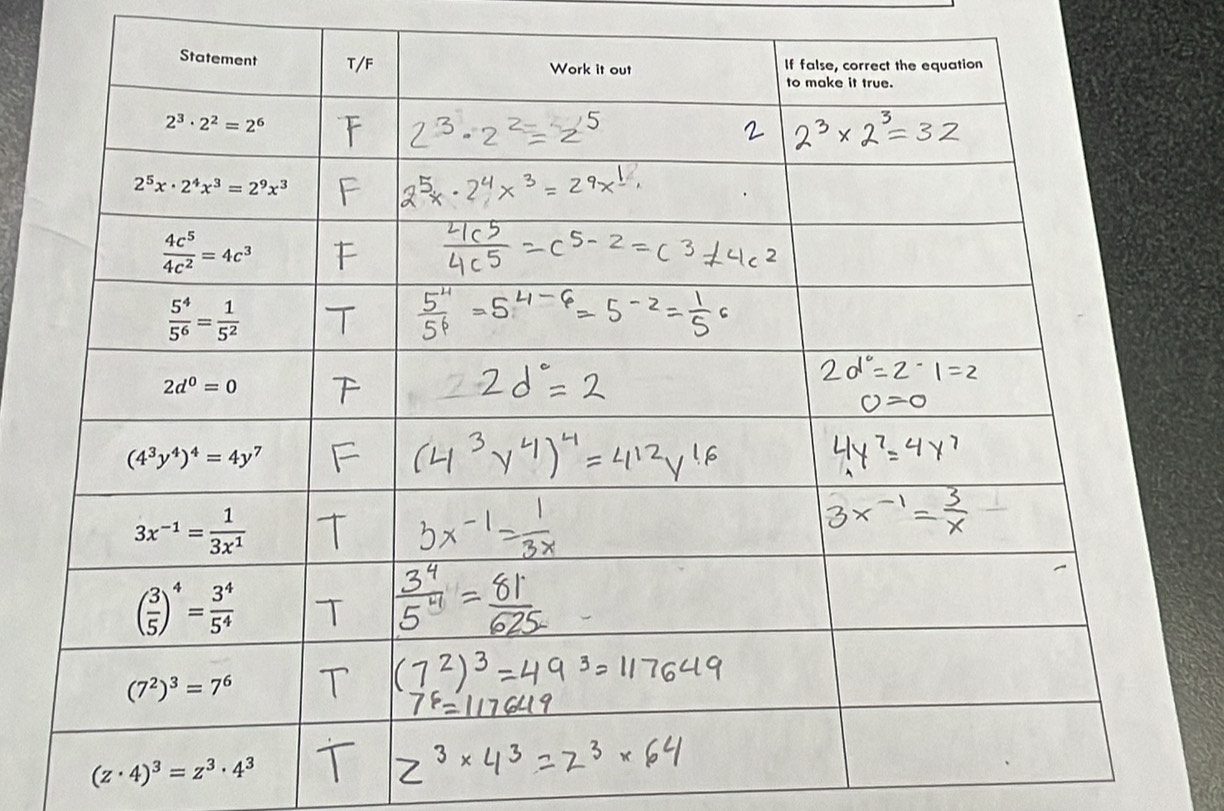 Statement T/F Work it out If false, correct the equation to make it true.
2³ · 2² = 2⁶ F 2³ · 2² = 2⁵ 2 2³ × 2³ = 32
2⁵x · 2⁴x³ = 2⁹x³ F 2⁵x · 2⁴x³ = 2⁹x
4c⁵/4c² = 4c³ F 4c⁵/4c⁵ = c⁵⁻² = c³ ≠ 4c²
5⁴/5⁶ = 1/5² T 5⁴/5⁶ = 5⁴⁻⁶ = 5⁻² = 1/5⁶
2d⁰ = 0 F 2d° = 2 2d° = 2 · 1 = 2
0 = 0
(4³y⁴)⁴ = 4y⁷ F (4³y⁴)⁴ = 4¹²y¹⁶ 4y⁷ = 4y⁷
3x⁻¹ = 1/3x¹ T 3x⁻¹ = 1/3x 3x⁻¹ = 3/x
(3/5)⁴ = 3⁴/5⁴ T 3⁴/5⁴ = 81/625
(7²)³ = 7⁶ T (7²)³ = 49³ = 117649
7⁶ = 117649
(z · 4)³ = z³ · 4³ T z³ × 4³ = z³ × 64